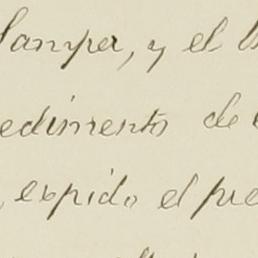 Samper, y el
edimento de
expido el pre